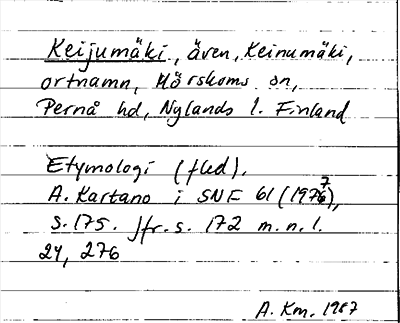 Keijumäki, även, Keinumäki,
ortnamn, Mörskoms sn,
Pernå hd, Nylands l. Finland
Etymologi (fled).
A. Kartano i SNF 61 (1977),
s. 175. Jfr. s. 172 m. n. l.
24, 276
A. Km. 1987